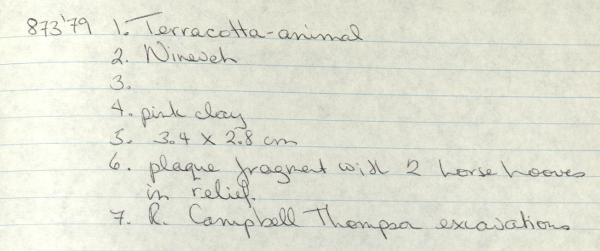 873'79 1. Terracotta-animal
2. Nineveh
3.
4. pink clay
5. 3.4 x 2.8 cm
6. plaque fragment with 2 horse hooves
in relief.
7. R. Campbell Thompson excavations